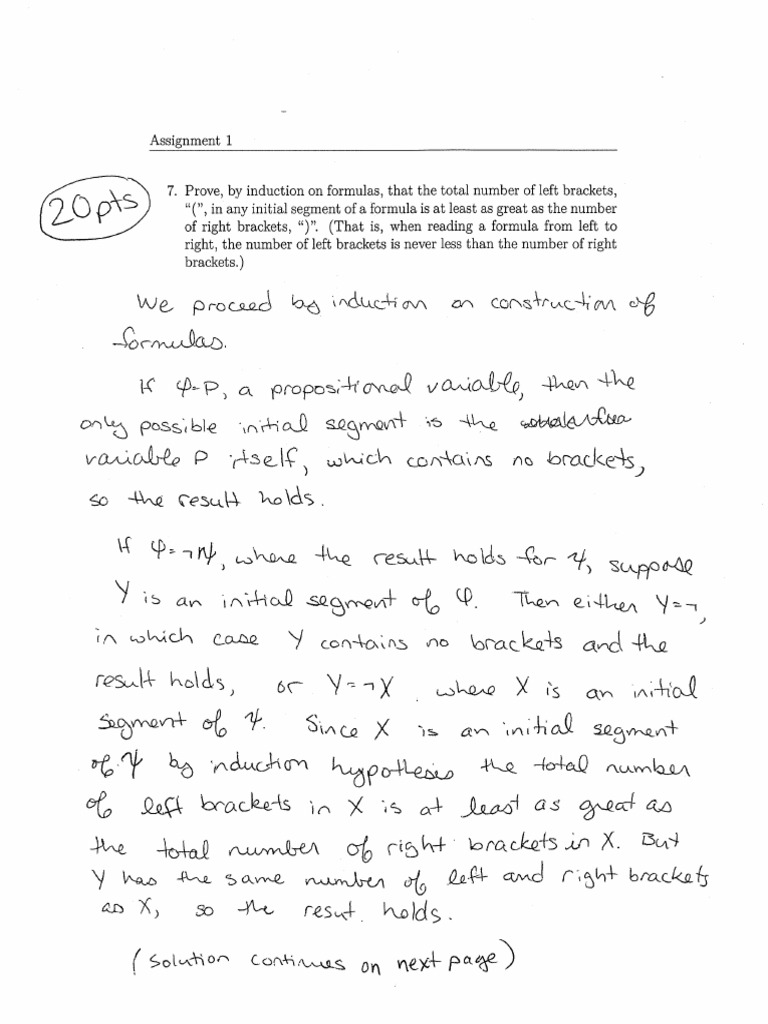 Assignment 1
20pts
7. Prove, by induction on formulas, that the total number of left brackets,
“(”, in any initial segment of a formula is at least as great as the number
of right brackets, “)”. (That is, when reading a formula from left to
right, the number of left brackets is never less than the number of right
brackets.)
We proceed by induction on construction of
formulas.
If φ=P, a propositional variable, then the
only possible initial segment is the
variable P itself, which contains no brackets,
so the result holds.
If φ=¬ψ, where the result holds for ψ, suppose
Y is an initial segment of φ. Then either Y=¬,
in which case Y contains no brackets and the
result holds, or Y=¬X where X is an initial
segment of ψ. Since X is an initial segment
of ψ by induction hypothesis the total number
of left brackets in X is at least as great as
the total number of right brackets in X. But
Y has the same number of left and right brackets
as X, so the resut holds.
(Solution continues on next page)